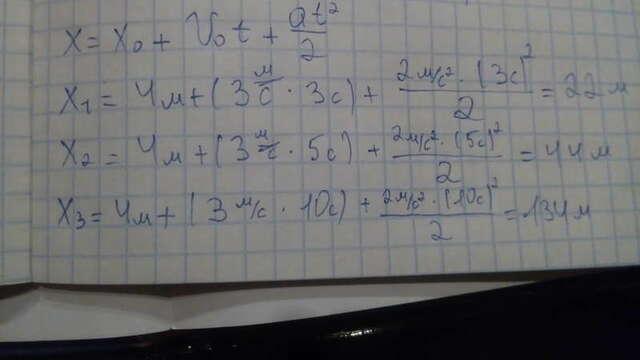 x = x₀ + v₀t + at²/2
x₁ = 4м + (3 м/с · 3с) + 2м/с² · (3с)²/2 = 22м
x₂ = 4м + (3 м/с · 5с) + 2м/с² · (5с)²/2 = 44м
x₃ = 4м + (3 м/с · 10с) + 2м/с² · (10с)²/2 = 134м